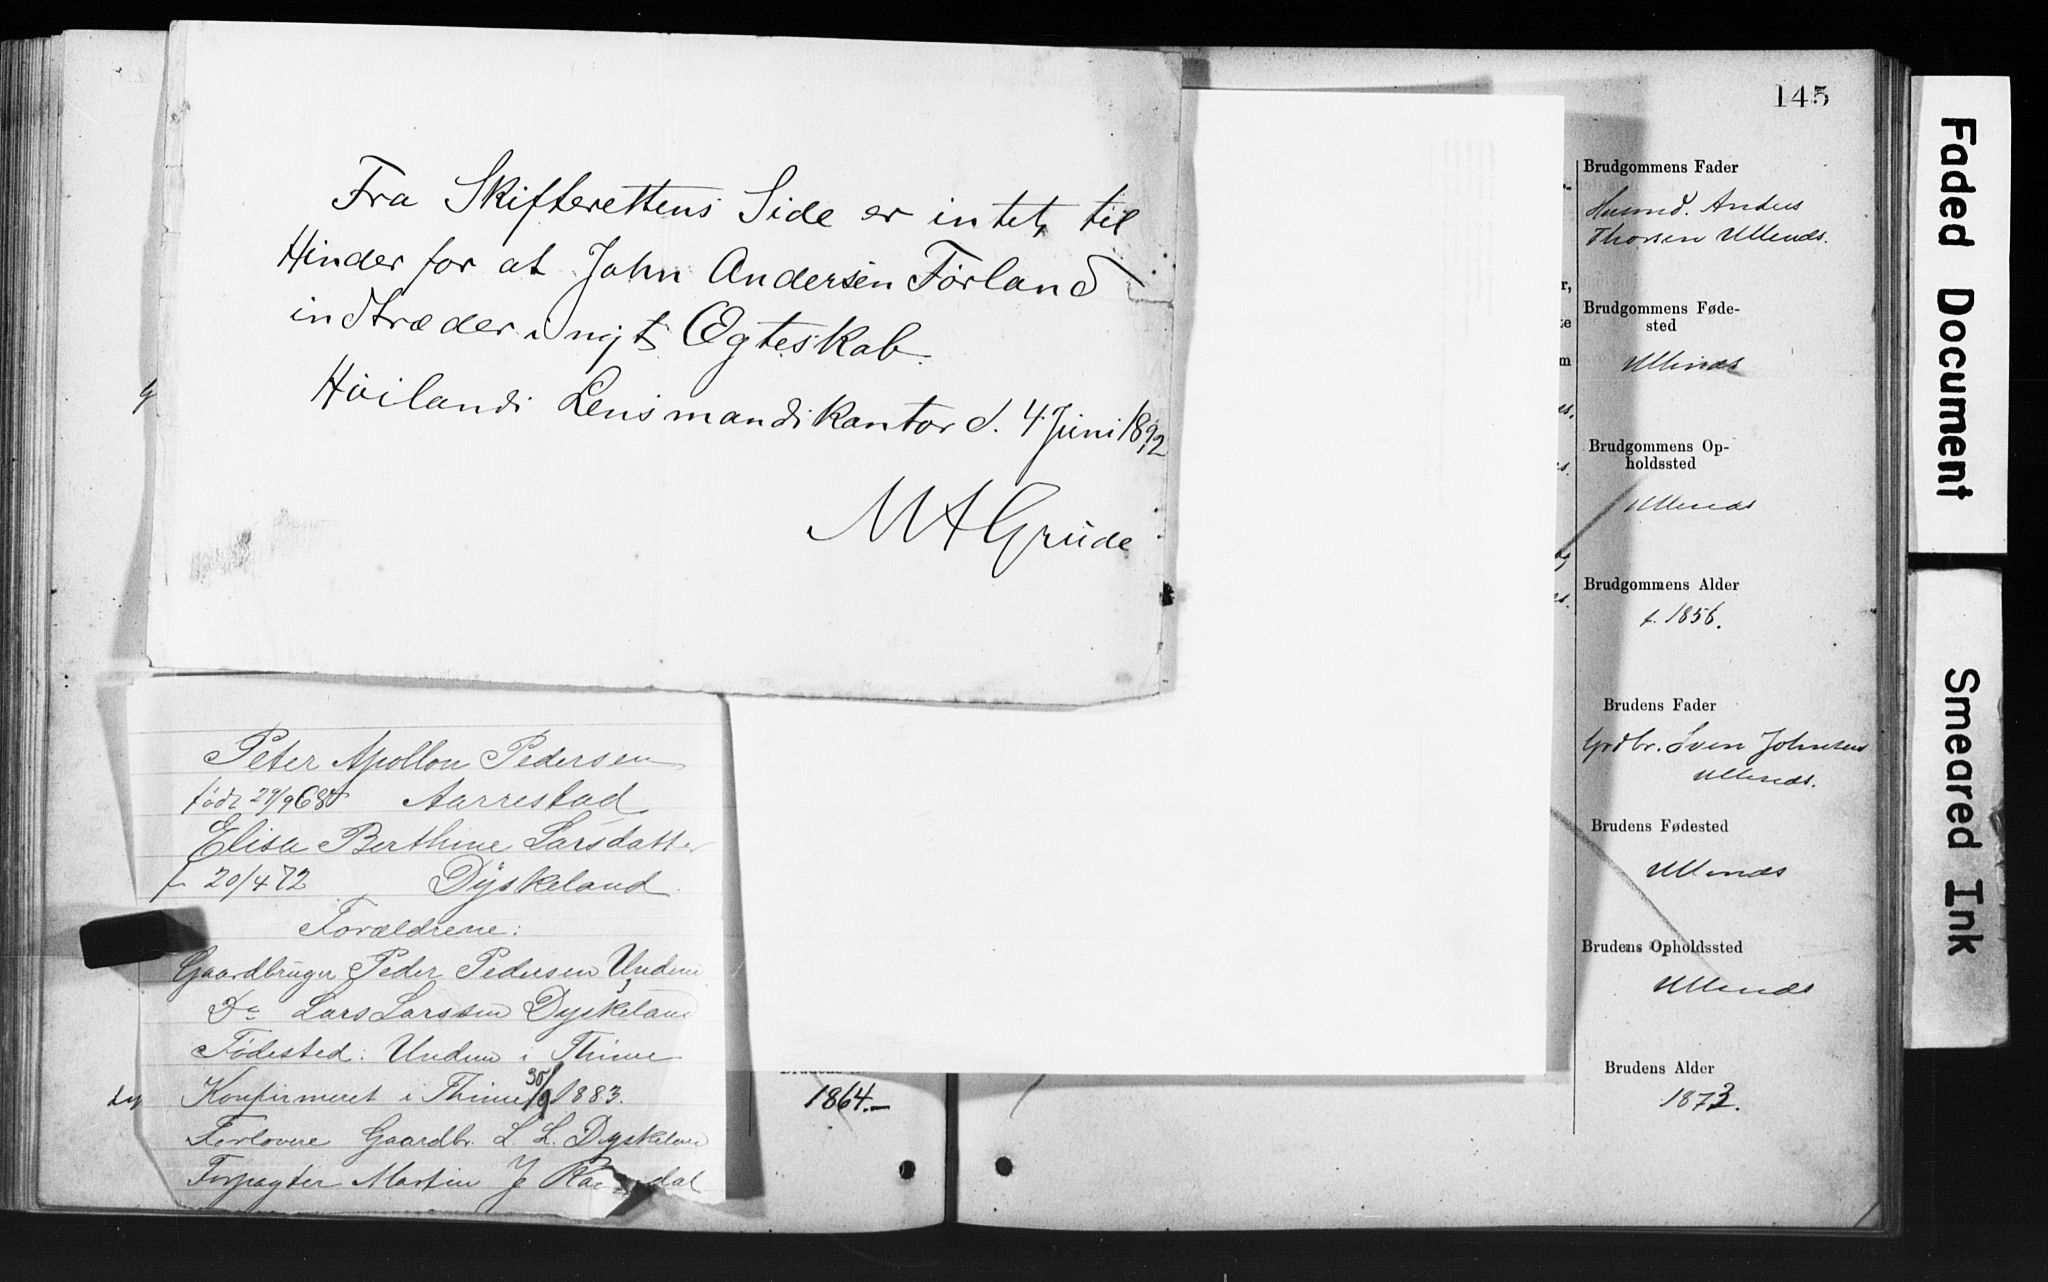 Fra Skifterettens Side er intet til
Hinder for at John Andersen Førland
indtræder i nyt Ægteskab.
Høilands Lensmandskontor d. 4 Juni 1892
M A Grude
Peter Apollon Pedersen
født 29/9 68 Aarrestad
Elisa Berthine Larsdatter
f 20/4 72 Dyskeland
Forældrene:
Gaardbruger Peder Pedersen Undem
Do Lars Larssen Dyskeland
Fødested: Undem i Thime
Konfirmeret i Thime 1883.
Forlovere Gaardbr. L. L. Dyskeland
Forpagter Martin J
1864.—
145
Brudgommens Fader
Husmd. Anders
Thorsen Ullends.
Brudgommens Føde-
sted
Ullends
Brudgommens Op-
holdssted
Ullends
Brudgommens Alder
f. 1856.
Brudens Fader
Grdbr. Sven Johnsen
Ullends.
Brudens Fødested
Ullends
Brudens Opholdssted
Ullends
Brudens Alder
1873.
Faded Document
Smeared Ink